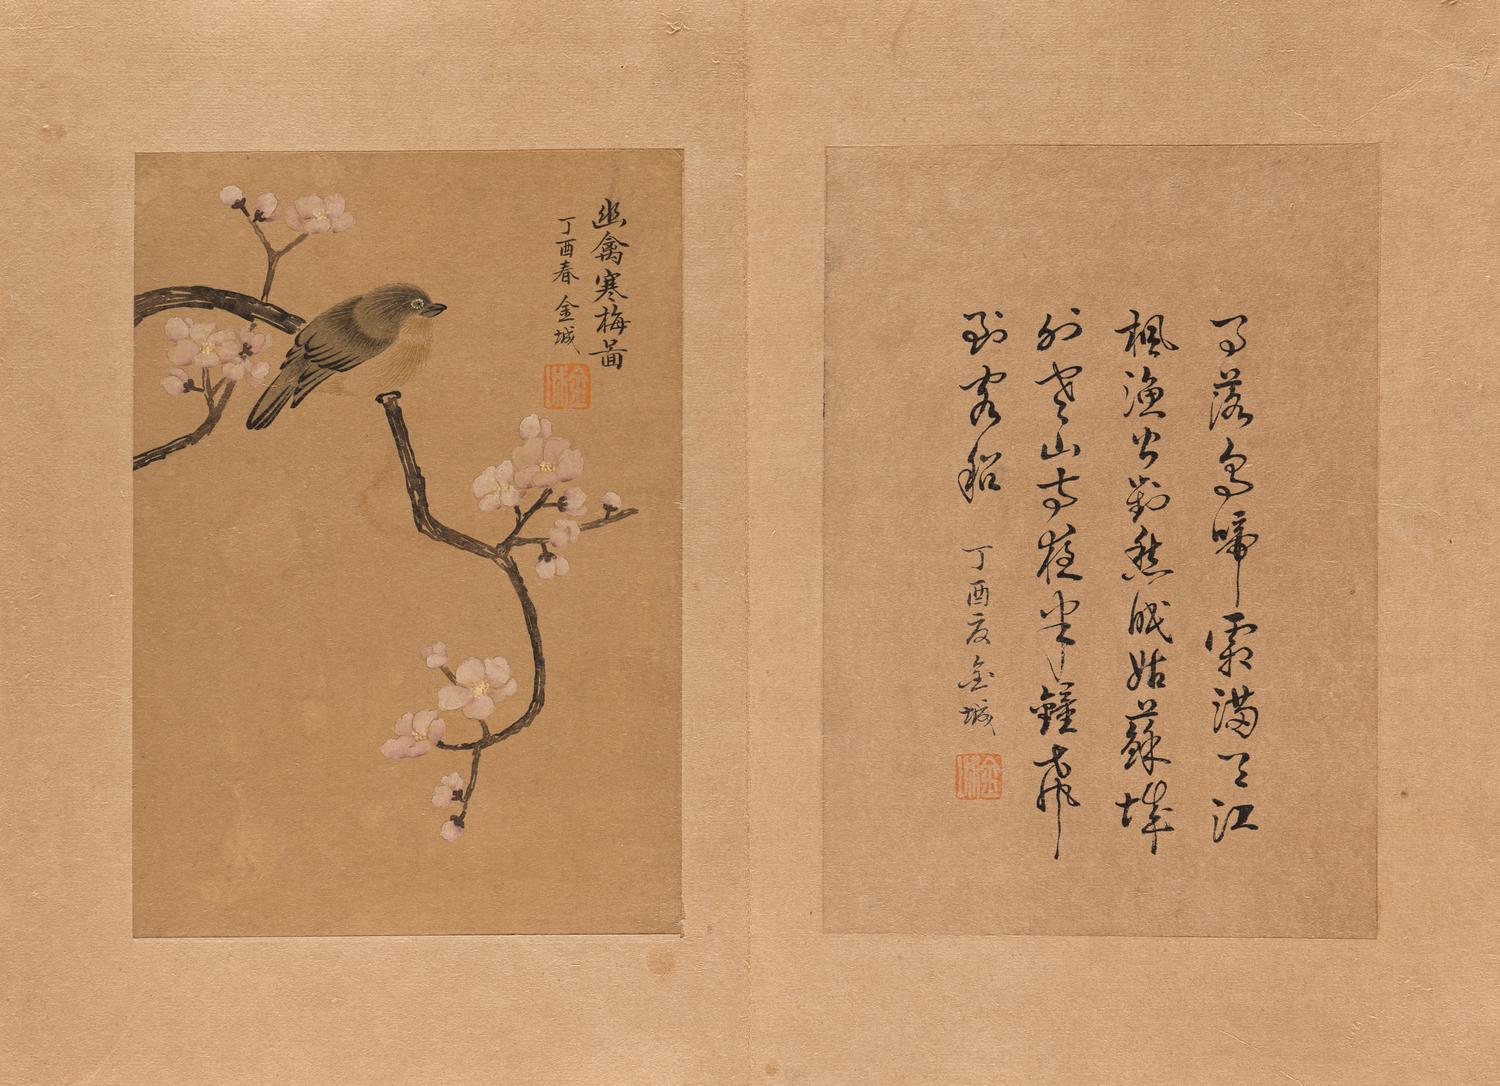 月落烏啼霜滿天江
楓漁火對愁眠姑蘇城
外寒山寺夜半鐘聲
到客船 丁酉夏 金城
幽禽寒梅啚
丁酉春 金城